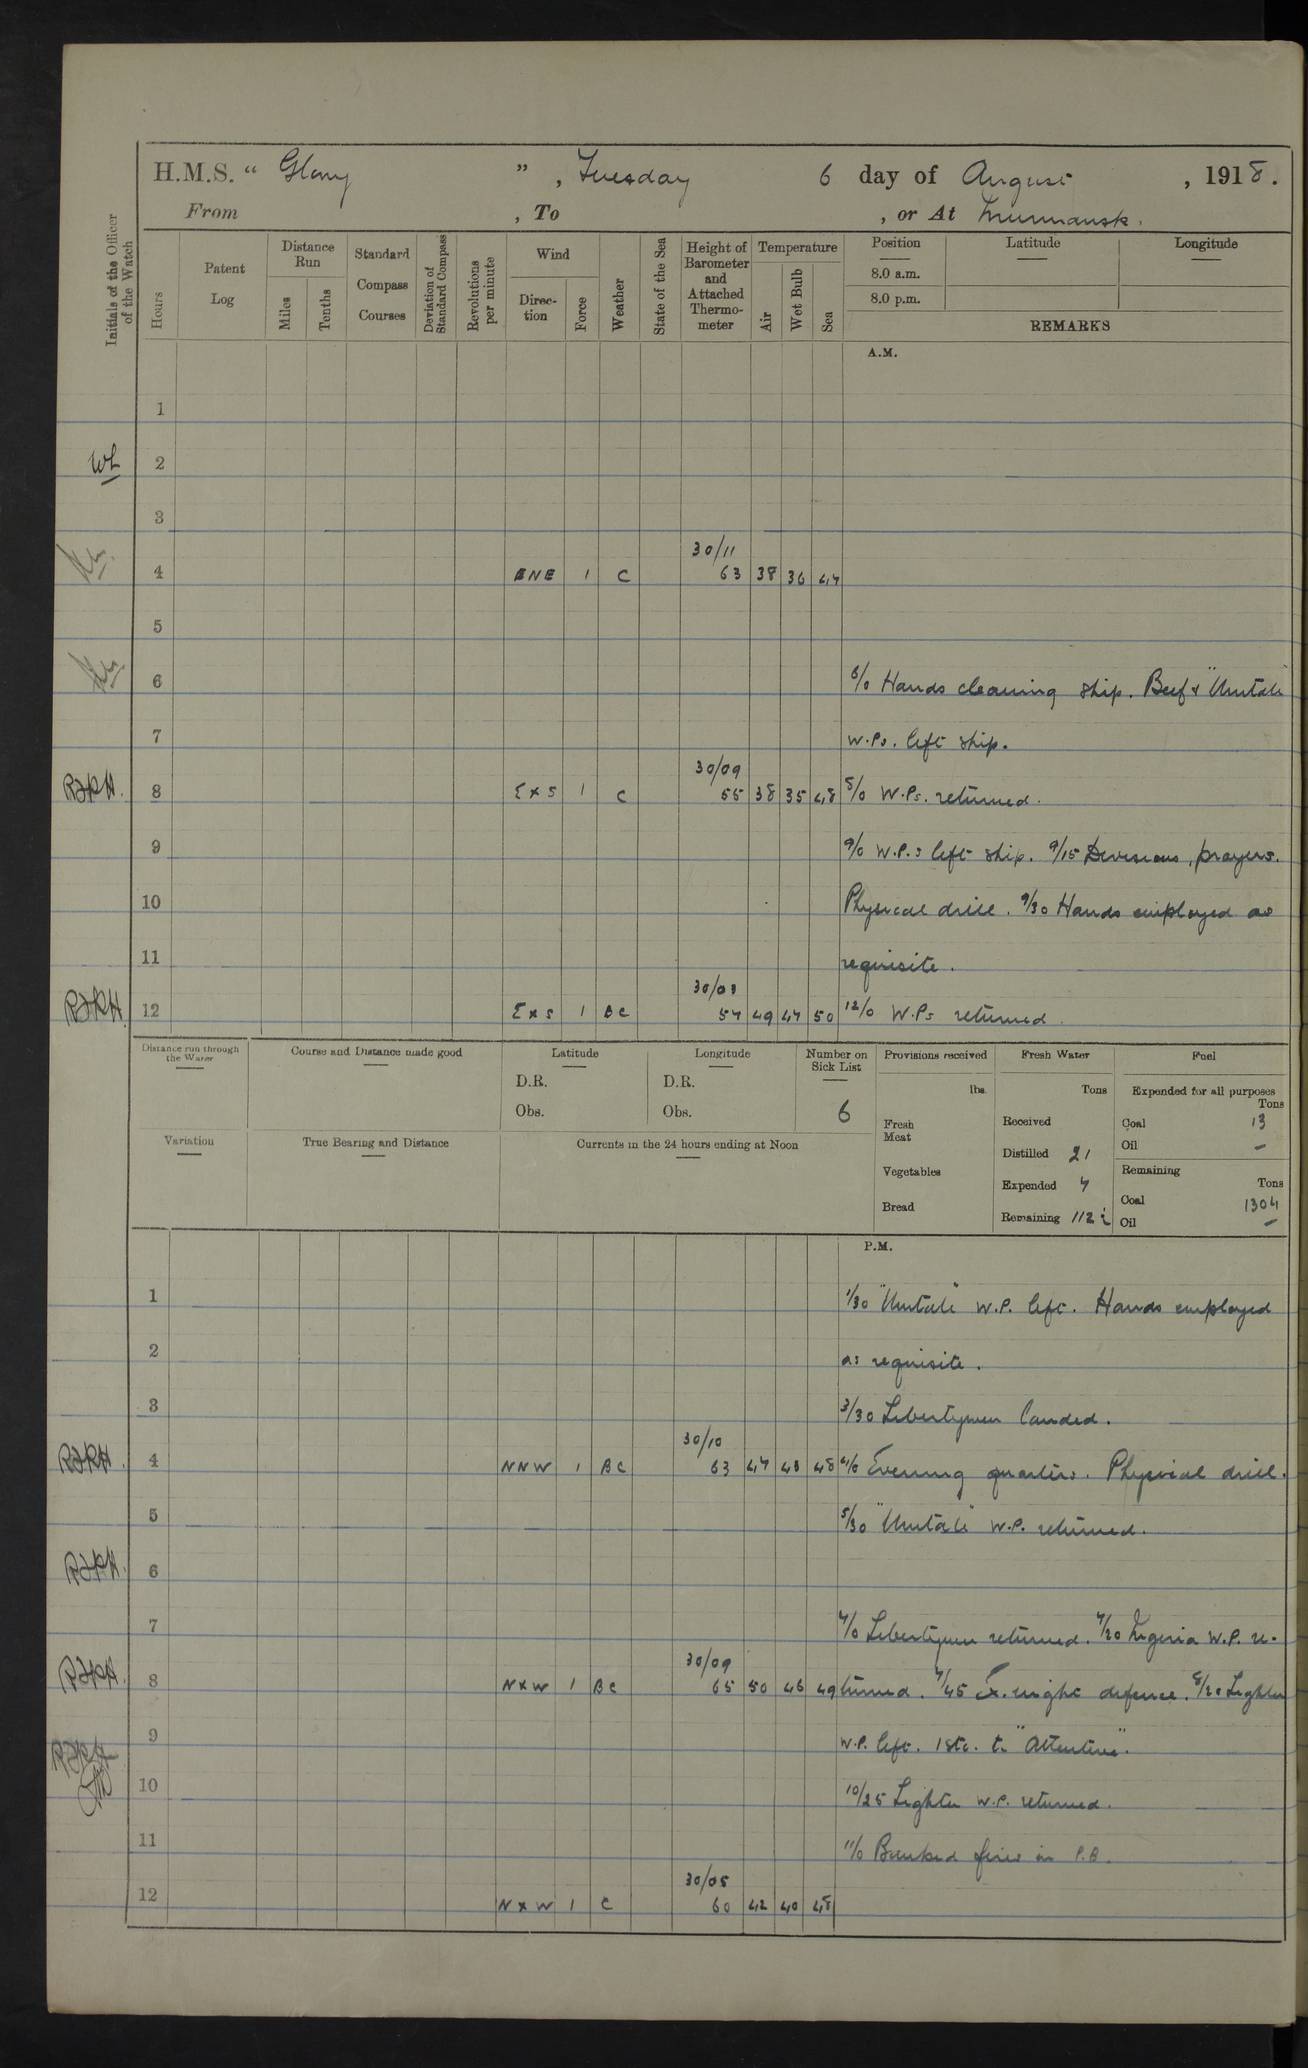 H.M.S. “ Glory ” , Tuesday 6 day of August , 1918.
From , To , or At Murmansk.
Initials of the Officer of the Watch
Hours
Patent Log
Distance Run
Miles
Tenths
Standard Compass Courses
Deviation of Standard Compass
Revolutions per minute
Wind
Direc-tion
Force
Weather
State of the Sea
Height of Barometer and Attached Thermo-meter
Temperature
Air
Wet Bulb
Sea
Position
Latitude
Longitude
8.0 a.m.
8.0 p.m.
REMARKS
A.M.
1
WL 2
3
30/11
4 ENE 1 C 63 38 36 47
5
6 6/0 Hands cleaning ship. Beef & "Umtali"
7 W.Ps. left ship.
30/09
RJRH. 8 E x S 1 C 65 38 35 48 8/0 W.Ps. returned.
9 9/0 W.P.s left ship. 9/15 Divisions, prayers.
10 Physical drill. 9/30 Hands employed as
11 requisite.
30/03
RJRH. 12 E x S 1 BC 57 49 47 50 12/0 W.Ps returned
Distance run through the Water
Course and Distance made good
Latitude
D.R.
Obs.
Longitude
D.R.
Obs.
Number on Sick List
6
Provisions received
lbs.
Fresh Meat
Vegetables
Bread
Fresh Water
Tons
Received
Distilled 21
Expended 7
Remaining 112
Fuel
Expended for all purposes
Tons
Coal 13
Oil —
Remaining
Tons
Coal 1304
Oil —
Variation
True Bearing and Distance
Currents in the 24 hours ending at Noon
P.M.
1 1/30 "Umtali" W.P. left. Hands employed
2 as requisite.
3 3/30 Libertymen landed.
30/10
RJRH. 4 NNW 1 BC 63 47 43 48 4/0 Evening quarters. Physical drill.
5 5/30 "Umtali" W.P. returned.
RJRH. 6
7 7/0 Libertymen returned. 7/20 Nigeria W.P. re-
30/09
RJRH. 8 N x W 1 BC 65 50 46 49 turned. 7/45 Ex. night defence. 8/20 Lighter
RJRH 9 W.P. left. 1 Sto. to "Attentive".
10 10/25 Lighter W.P. returned.
11 11/0 Banked fires in P.B.
30/05
12 N x W 1 C 60 42 40 48